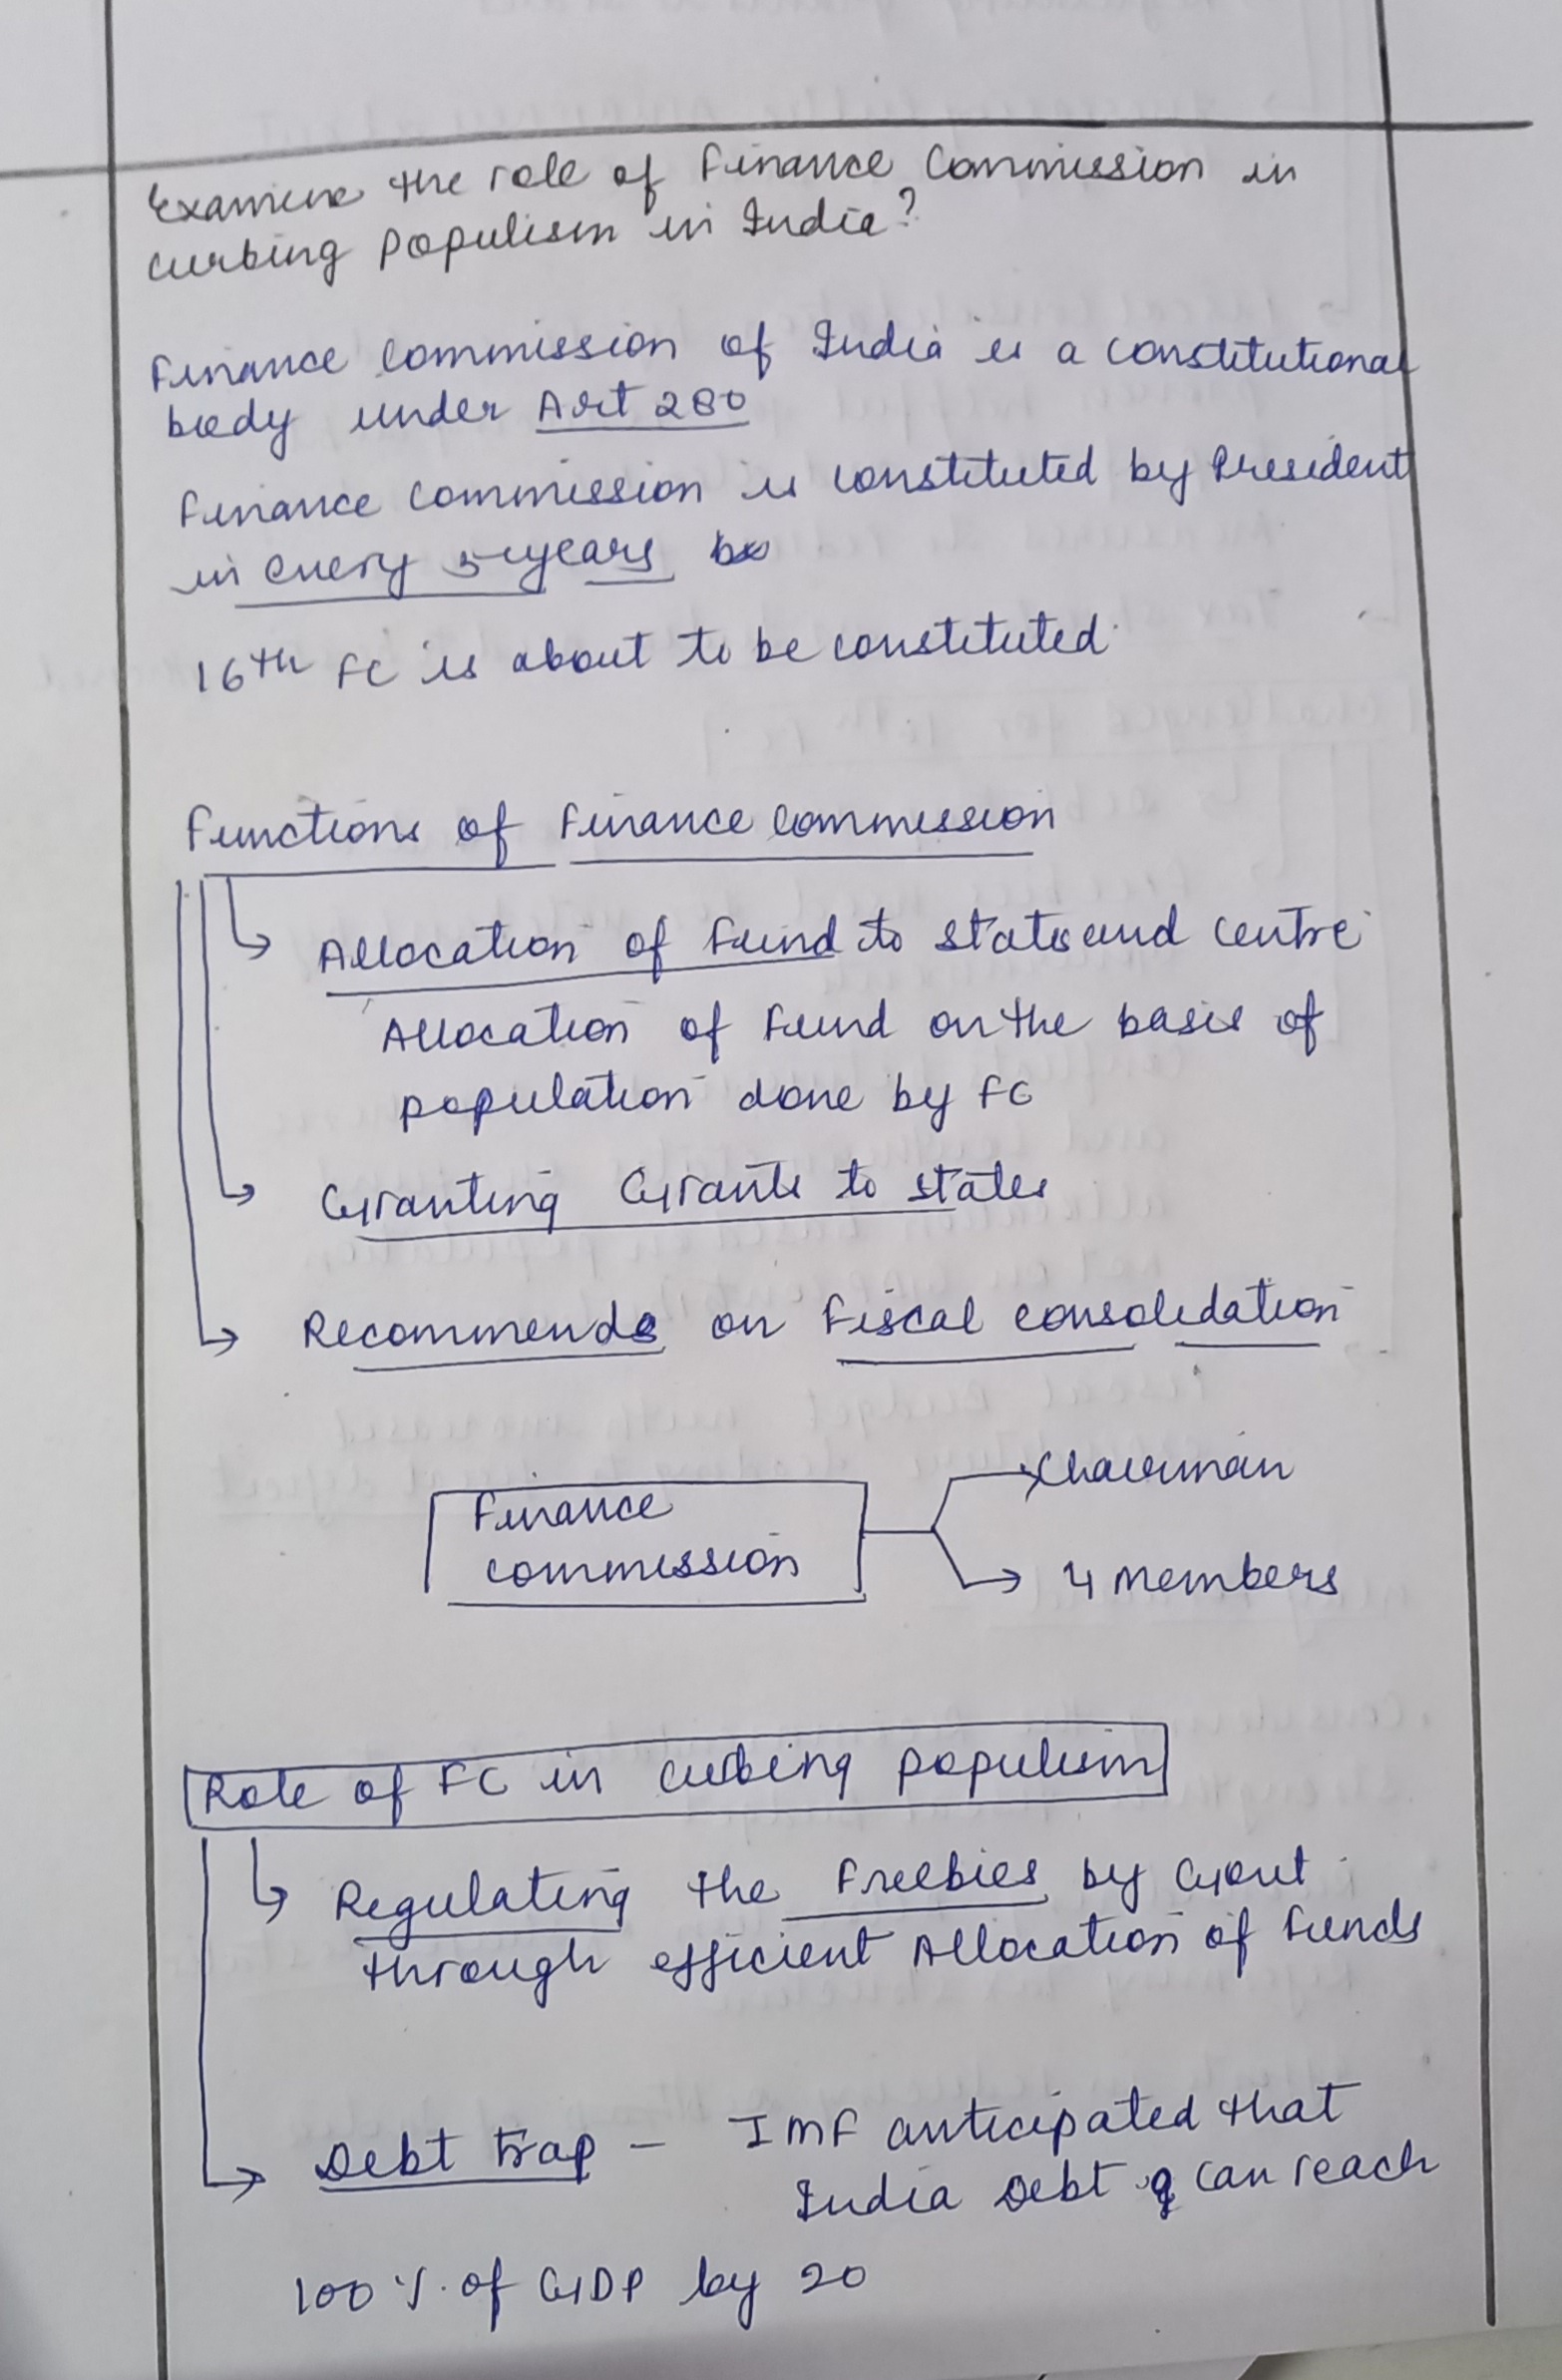 Examine the role of Finance Commission in
curbing populism in India?
Finance Commission of India is a constitutional
body under Art 280
Finance Commission is constituted by President
in every 5 years
16th FC is about to be constituted.
Functions of Finance Commission
Allocation of Fund to state and centre
Allocation of Fund on the basis of
population done by FC
Granting Grants to states
Recommends on Fiscal consolidation
Finance
commission
Chairman
4 members
Role of FC in curbing populism
Regulating the Freebies by Govt
through efficient Allocation of Funds
Debt trap - IMF anticipated that
India Debt can reach
100% of GDP by 20